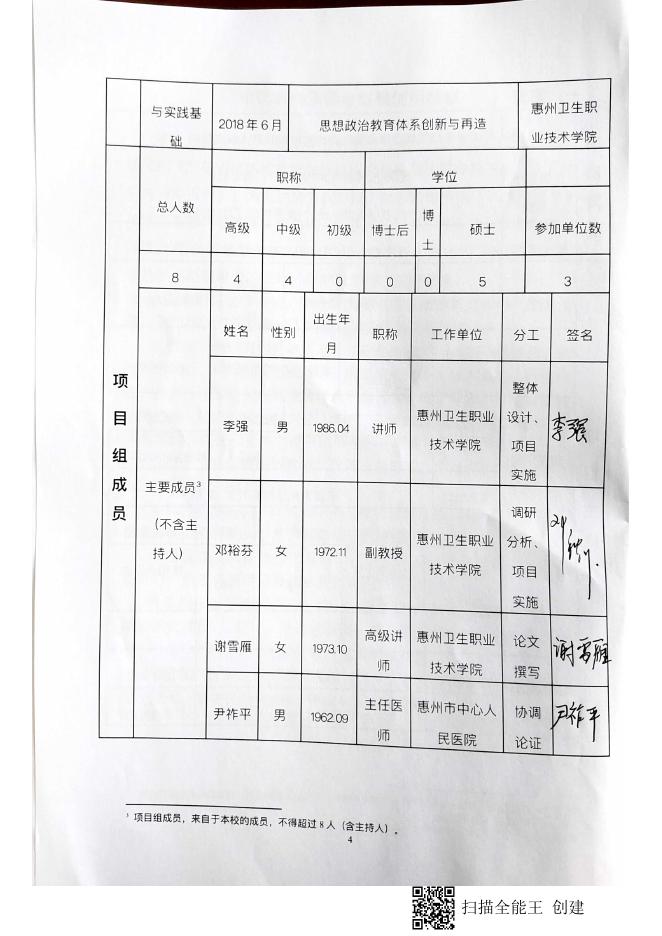 与实践基
础
2018年6月
思想政治教育体系创新与再造
惠州卫生职
业技术学院
项目组成员
总人数
职称
学位
高级
中级
初级
博士后
博士
硕士
参加单位数
8
4
4
0
0
0
5
3
主要成员3
（不含主
持人）
姓名
性别
出生年
月
职称
工作单位
分工
签名
李强
男
1986.04
讲师
惠州卫生职业
技术学院
整体
设计、
项目
实施
李强
邓裕芬
女
1972.11
副教授
惠州卫生职业
技术学院
调研
分析、
项目
实施
谢雪雁
女
1973.10
高级讲
师
惠州卫生职业
技术学院
论文
撰写
谢雪雁
尹祚平
男
1962.09
主任医
师
惠州市中心人
民医院
协调
论证
尹祚平
3 项目组成员，来自于本校的成员，不得超过8人（含主持人）。
4
扫描全能王 创建